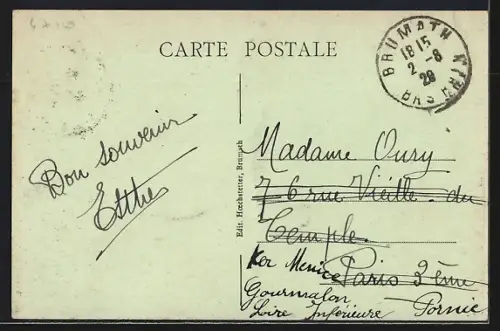 CARTE POSTALE
BRUMATH
18 15
2 -8
29
BAS RHIN
Bon souvenir
Esther
Edit. Hœchstetter, Brumath
Madame Oury
76 rue Vieille du
Temple.
Ker Menice Paris 3ème
Gourmalon Pornic
Loire Inférieure